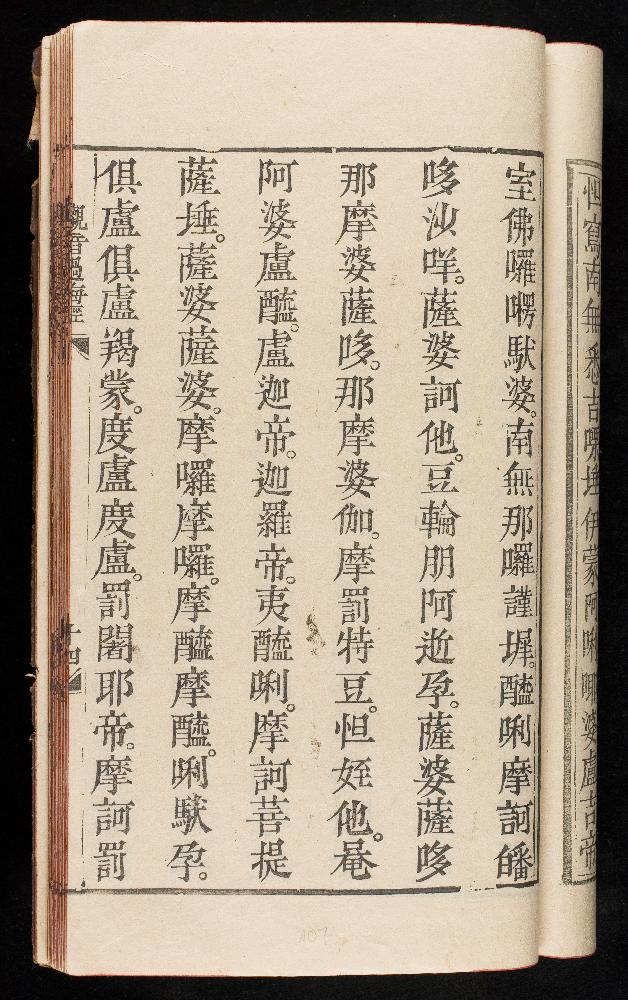 怛寫南無悉吉嘌埵伊蒙阿唎哪婆盧吉帝
室佛囉㘄馱婆。南無那囉謹墀。醯唎摩訶皤
哆沙咩。薩婆訶他。豆輪朋阿逝孕。薩婆薩哆
那摩婆薩哆。那摩婆伽。摩罰特豆。怛姪他。菴
阿婆盧醯。盧迦帝。迦羅帝。夷醯唎。摩訶菩提
薩埵。薩婆薩婆。摩囉摩囉。摩醯摩醯。唎馱孕。
俱盧俱盧羯蒙。度盧度盧。罰闍耶帝。摩訶罰
觀音過海經
十四